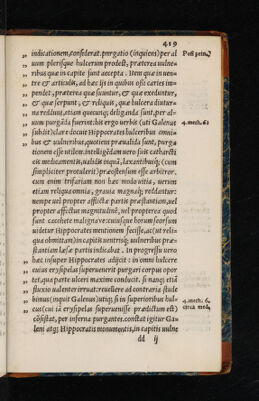 419
indicationem, considerat. purgatio (inquiens) per al
uum plerisque hulcerum prodest, præterea vulne-
ribus quæ in capite sunt accepta. Item quæ in uen-
tre & articulis, ad hæc ijs in quibus ossi caries im-
pendet, præterea quæ suuntur, & quæ exeduntur,
& quæ serpunt, & reliquis, quæ hulcera diutur-
na reddunt, etiam quecunque deliganda sunt, per al-
uum purgãda fuerint. his ergo verbis (uti Galenus
subijt) clare docuit Hippocrates hulceribus omni-
bus & vulneribus, quoties præualida sunt, purga
tionem esse utilem. intelligédam uero suis catharcti
cis medicamentis, validis inquã, laxantibusque (cum
simpliciter protulerit) præostensum esse arbitror.
cum enim trifariam non hæc modo uitia, uerum
etiam reliqua omnia, grauia magnaque reddantur:
nempe vel propter afflictæ partis præstantiam, vel
propter affectus magnitudinē, vel propterea quod
sunt cacoethe
uidetur Hippocrates mentionem fecisse, ac (ut reli
qua obmittam) in capitis uentrisque vulneribus præ-
stantiam læsæ partis indicabat. In progressu vero
hæc insuper Hippocrates adijcit: in omni hulcere
cuius erysipelas superuenerit purgari corpus opor
tet, qua parte ulceri maxime conducit. si nanque etiã
fluxio ualenter irruat: reuellere ad contraria stude
bimus (inquit Galenus) utique si in superioribus hul-
cus (cui iã erysipelas superuenisse prædictum est)
cõsistat, per inferna purgantes. constat igitur Ga-
leni atque Hippocratis monumentis, in capitis vulne
dd ij
Post prin.
4. meth. 6.
4. meth. 6.
circa med.